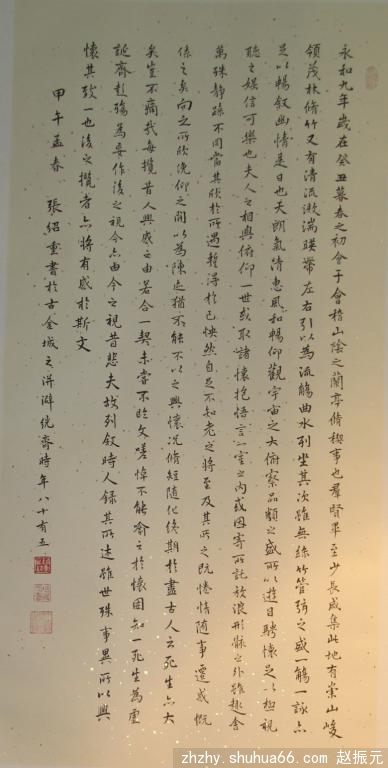 永和九年歲在癸丑暮春之初會于會稽山陰之蘭亭脩禊事也羣賢畢至少長咸集此地有崇山峻
領茂林脩竹又有清流激湍暎帶左右引以為流觴曲水列坐其次雖無絲竹管弦之盛一觴一詠亦
足以暢叙幽情是日也天朗氣清惠風和暢仰觀宇宙之大俯察品類之盛所以遊目騁懷足以極視
聽之娛信可樂也夫人之相與俯仰一世或取諸懷抱悟言一室之內或因寄所託放浪形骸之外雖趣舍
萬殊靜躁不同當其欣於所遇暫得於己怏然自足不知老之將至及其所之既惓情隨事遷感慨
係之矣向之所欣俛仰之間以為陳迹猶不能不以之興懷況脩短隨化終期於盡古人云死生亦大
矣豈不痛哉每攬昔人興感之由若合一契未嘗不臨文嗟悼不能喻之於懷固知一死生為虛
誕齊彭殤為妄作後之視今亦由今之視昔悲夫故列叙時人錄其所述雖世殊事異所以興
懷其致一也後之攬者亦將有感於斯文
甲午孟春 張紹重書於古金城之洴澼絖齋時年八十有五
zhzhy.shuhua66.com 赵振元